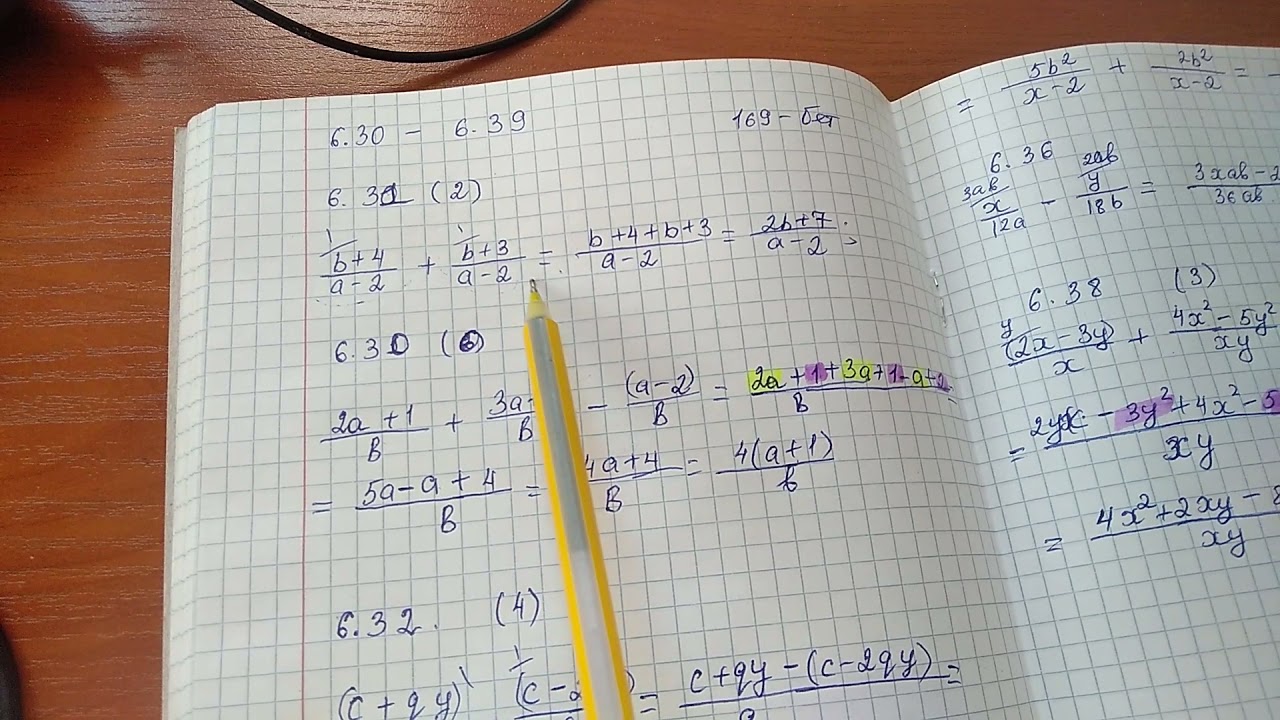 6.30 - 6.39 169-бет
6.30 (2)
b+4/a-2 + b+3/a-2 = b+4+b+3/a-2 = 2b+7/a-2;
6.30 (6)
2a+1/B + 3a+/B - (a-2)/B = 2a+1+3a+1-a+2/B
= 5a-a+4/B = 4a+4/B = 4(a+1)/b
6.32. (4)
(c+qy) (c-2 ) = c+qy-(c-2qy) =
= 5b²/x-2 + 2b²/x-2 =
6.36
3ab 2ab
x/12a - y/18b = 3xab-2/36ab
6.38 (3)
y
(2x-3y)/x + 4x²-5y²/xy
= 2yx-3y²+4x²-5/xy
= 4x²+2xy-8/xy